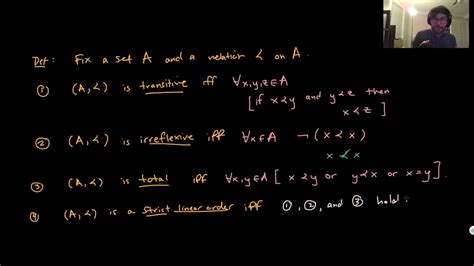 Def: Fix a set A and a relation ≺ on A.
① (A, ≺) is transitive iff ∀x,y,z∈A
[if x≺y and y≺z then
x≺z]
② (A, ≺) is irreflexive iff ∀x∈A ¬(x≺x)
x⊀x
③ (A, ≺) is total iff ∀x,y∈A [x≺y or y≺x or x=y].
④ (A, ≺) is a strict linear order iff ①, ②, and ③ hold.